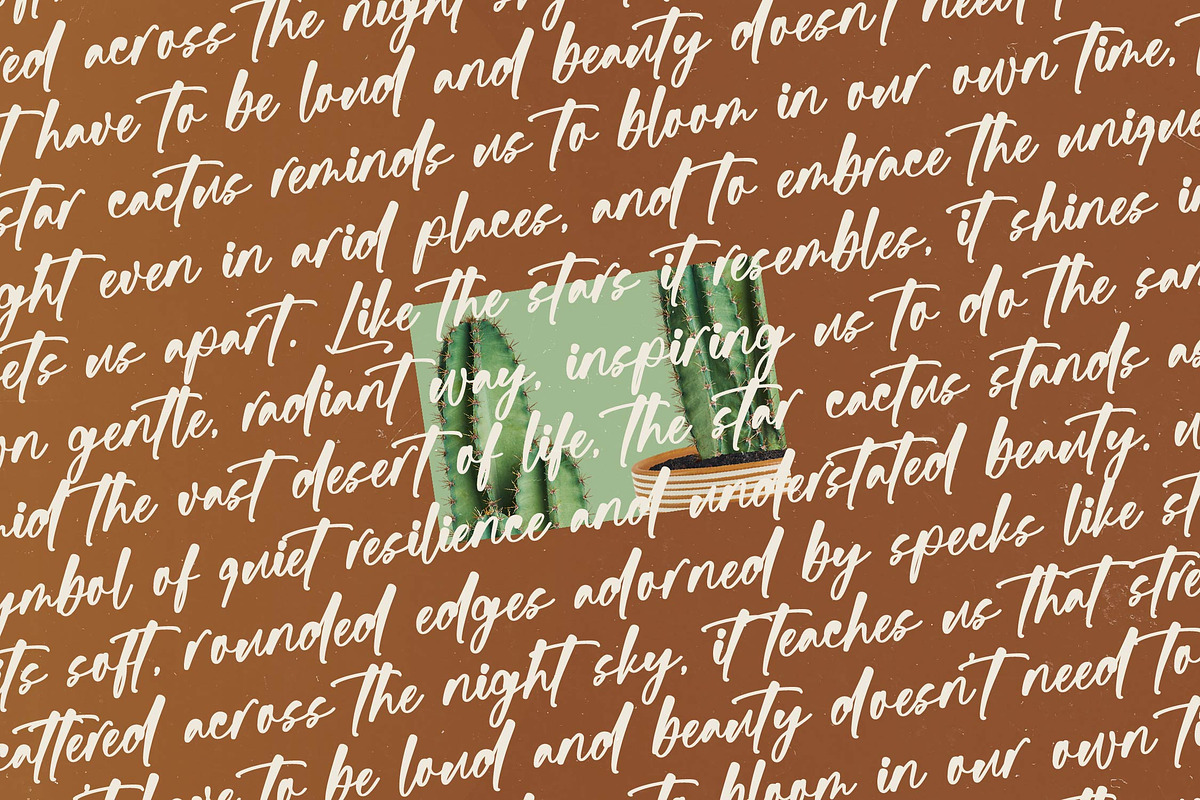 red across the night sky
t have to be loud and beauty doesn't need
star cactus reminds us to bloom in our own time,
ght even in arid places, and to embrace the unique
ets us apart. Like the stars it resembles, it shines in
on gentle, radiant way, inspiring us to do the sam
mid the vast desert of life, the star cactus stands as
ymbol of quiet resilience and understated beauty.
its soft, rounded edges adorned by specks like st
cattered across the night sky, it teaches us that stre
have to be loud and beauty doesn't need to
to bloom in our own